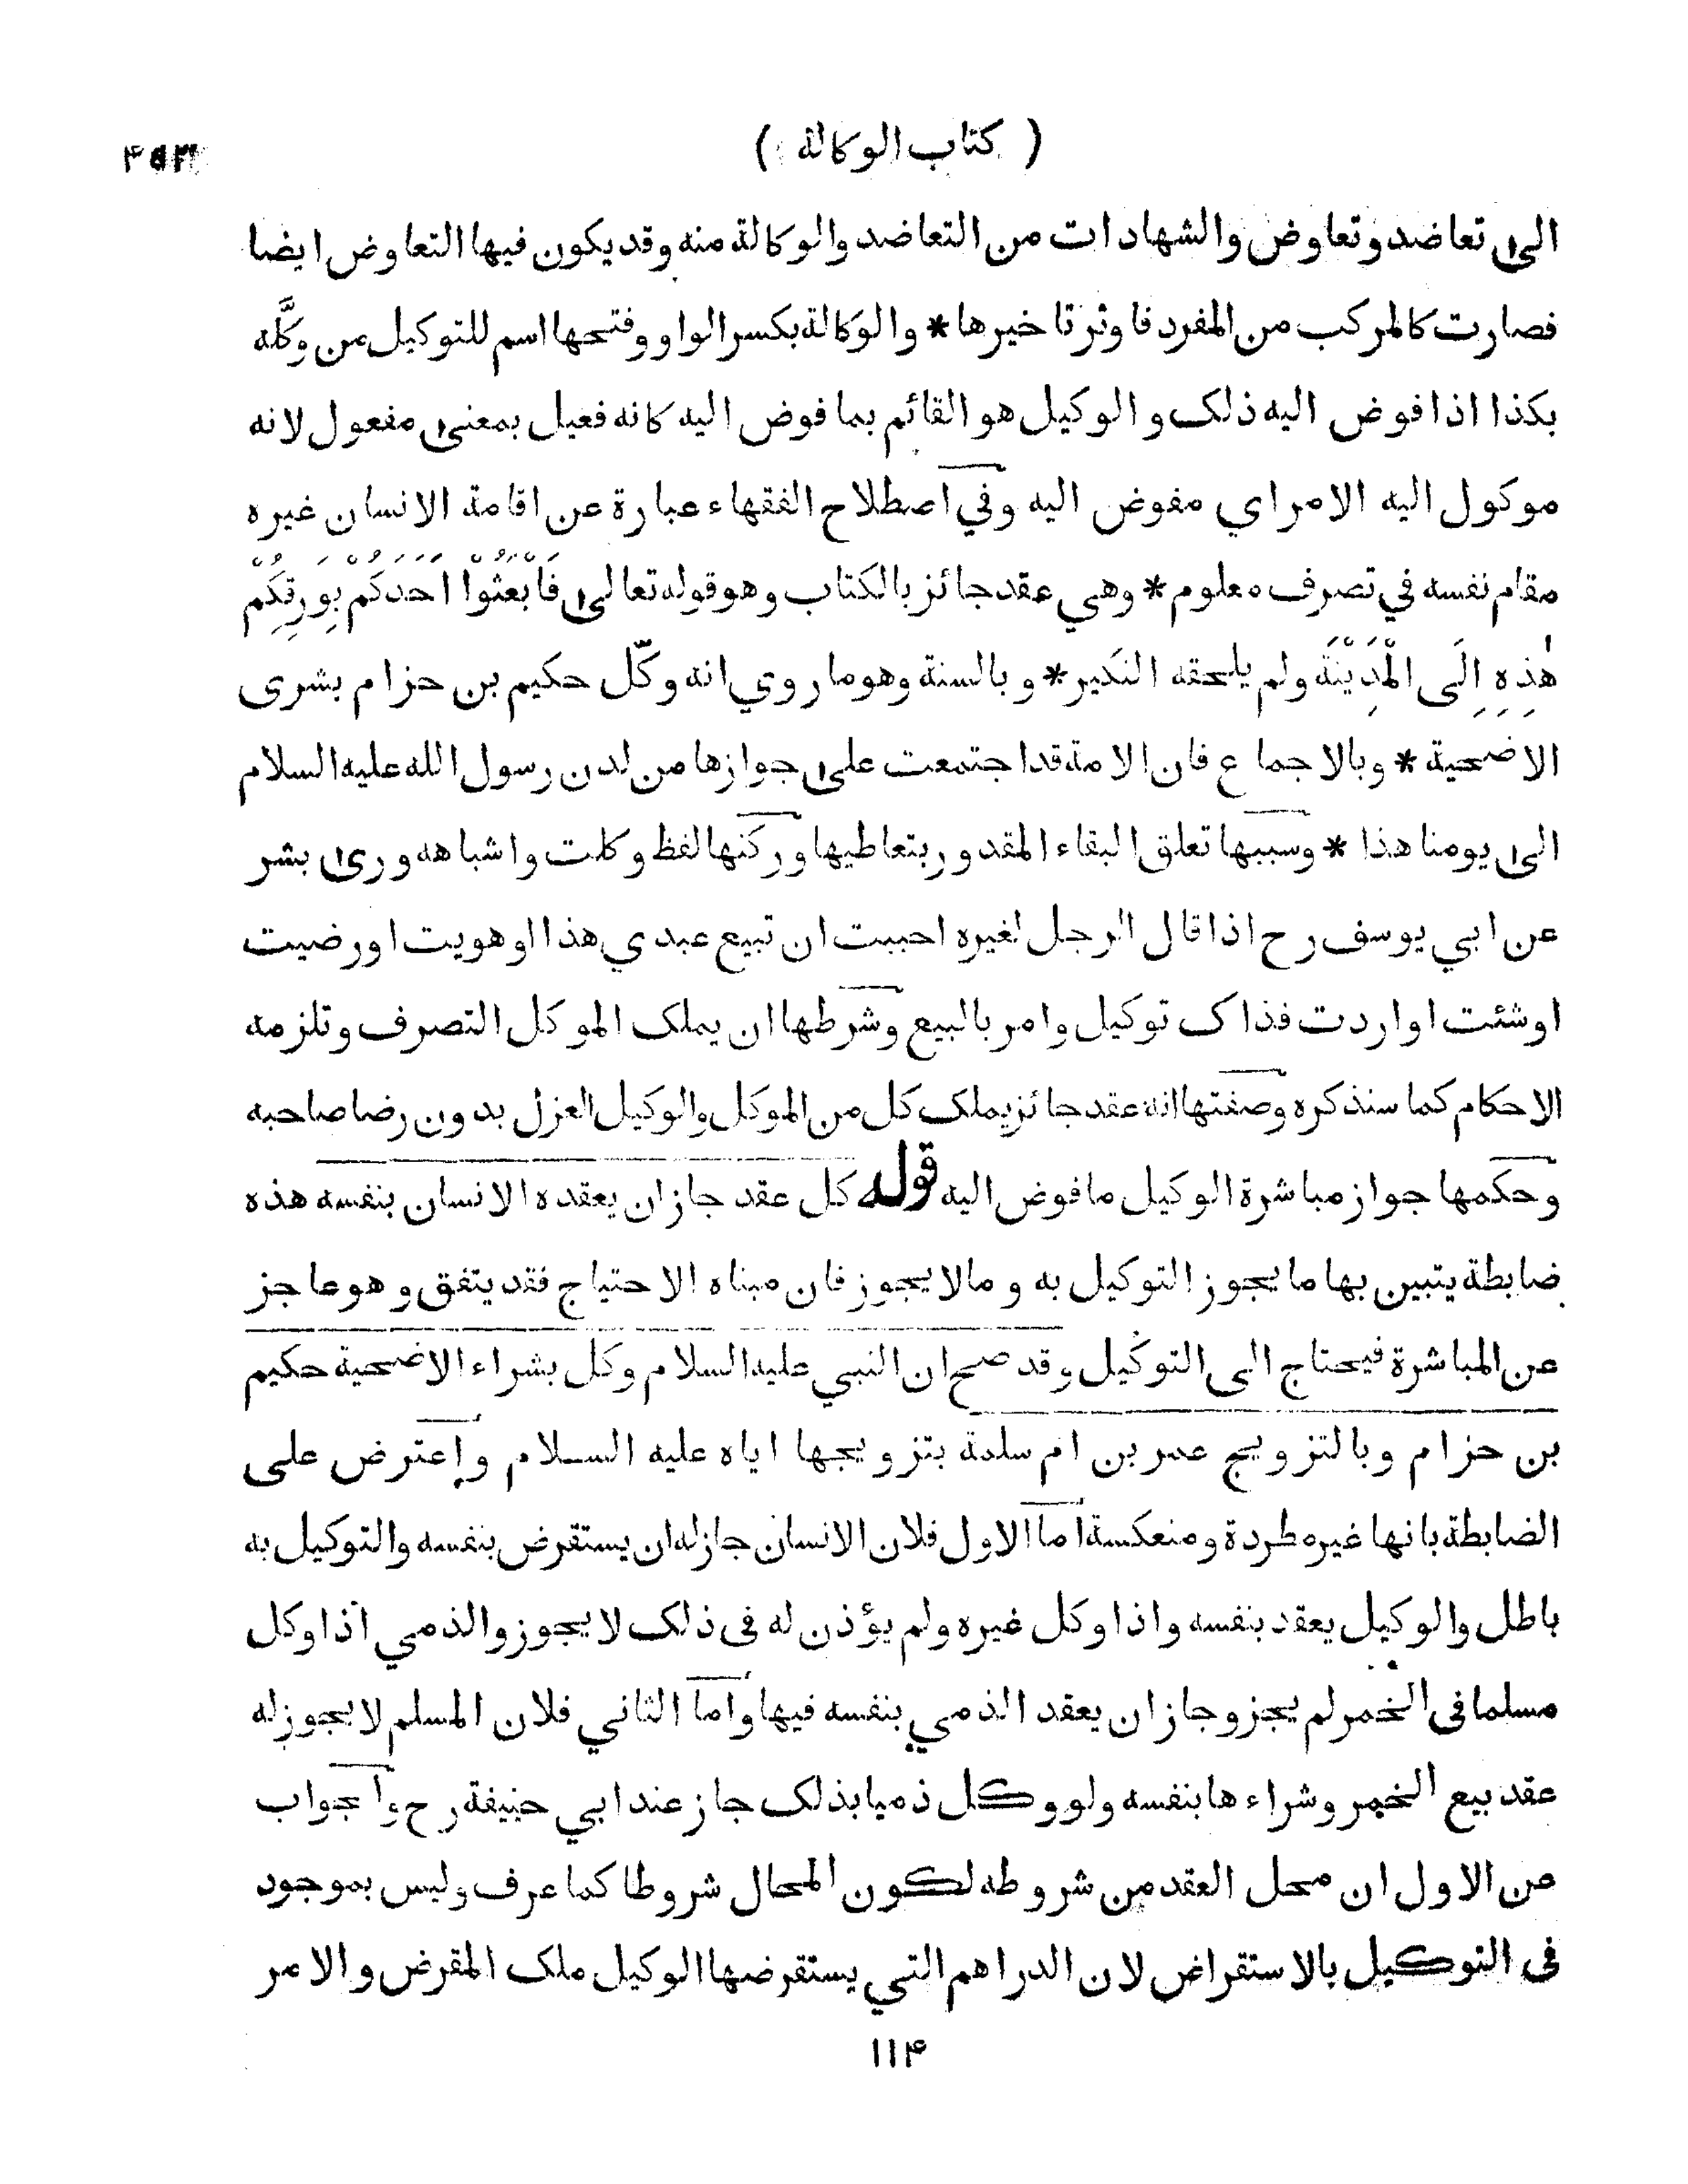 ( كتاب الوكالة )
الىٰ تعاضد وتعاوض والشهادات من التعاضد والوكالة منه وقد يكون فيها التعاوض ايضا
فصارت كالمركب من المفرد فاوثر تاخيرها * والوكالة بكسر الواو وفتحها اسم للتوكيل من وكَّله
بكذا اذا فوض اليه ذلك والوكيل هو القائم بما فوض اليه كانه فعيل بمعنىٰ مفعول لانه
موكول اليه الامر اي مفوض اليه وفي اصطلاح الفقهاء عبارة عن اقامة الانسان غيره
مقام نفسه في تصرف معلوم * وهي عقد جائز بالكتاب وهو قوله تعالىٰ فَابْعَثُوْا اَحَدَكُمْ بِوَرِقِكُمْ
هٰذِهِ اِلَى الْمَدِيْنَةِ ولم يلحقه النكير * وبالسنة وهو ما روي انه وكّل حكيم بن حزام بشرى
الاضحية * وبالاجماع فان الامة قد اجتمعت علىٰ جوازها من لدن رسول الله عليه السلام
الىٰ يومنا هذا * وسببها تعلق البقاء المقدور بتعاطيها وركنها لفظ وكلت واشباهه ورىٰ بشر
عن ابي يوسف رح اذا قال الرجل لغيره احببت ان تبيع عبدي هذا او هويت او رضيت
او شئت او اردت فذاك توكيل وامر بالبيع وشرطها ان يملك الموكل التصرف وتلزمه
الاحكام كما سنذكره وصفتها انه عقد جائز يملك كل من الموكل والوكيل العزل بدون رضا صاحبه
وحكمها جواز مباشرة الوكيل ما فوض اليه قوله كل عقد جاز ان يعقده الانسان بنفسه هذه
ضابطة يتبين بها ما يجوز التوكيل به وما لا يجوز فان مبناه الاحتياج فقد يتفق وهو عاجز
عن المباشرة فيحتاج الى التوكيل وقد صح ان النبي عليه السلام وكل بشراء الاضحية حكيم
بن حزام وبالتزويج عمر بن ام سلمة بتزويجها اياه عليه السلام واعترض على
الضابطة بانها غير مطردة ومنعكسة اما الاول فلان الانسان جاز له ان يستقرض بنفسه والتوكيل به
باطل والوكيل يعقد بنفسه واذا وكل غيره ولم يؤذن له فى ذلك لا يجوز والذمي اذا وكل
مسلما فى الخمر لم يجز وجاز ان يعقد الذمي بنفسه فيها واما الثاني فلان المسلم لا يجوز له
عقد بيع الخمر وشراءها بنفسه ولو وكل ذميا بذلك جاز عند ابي حنيفة رح وا جواب
عن الاول ان محل العقد من شروطه لكون المحال شروطا كما عرف وليس بموجود
فى التوكيل بالاستقراض لان الدراهم التي يستقرضها الوكيل ملك المقرض والامر
١١۴